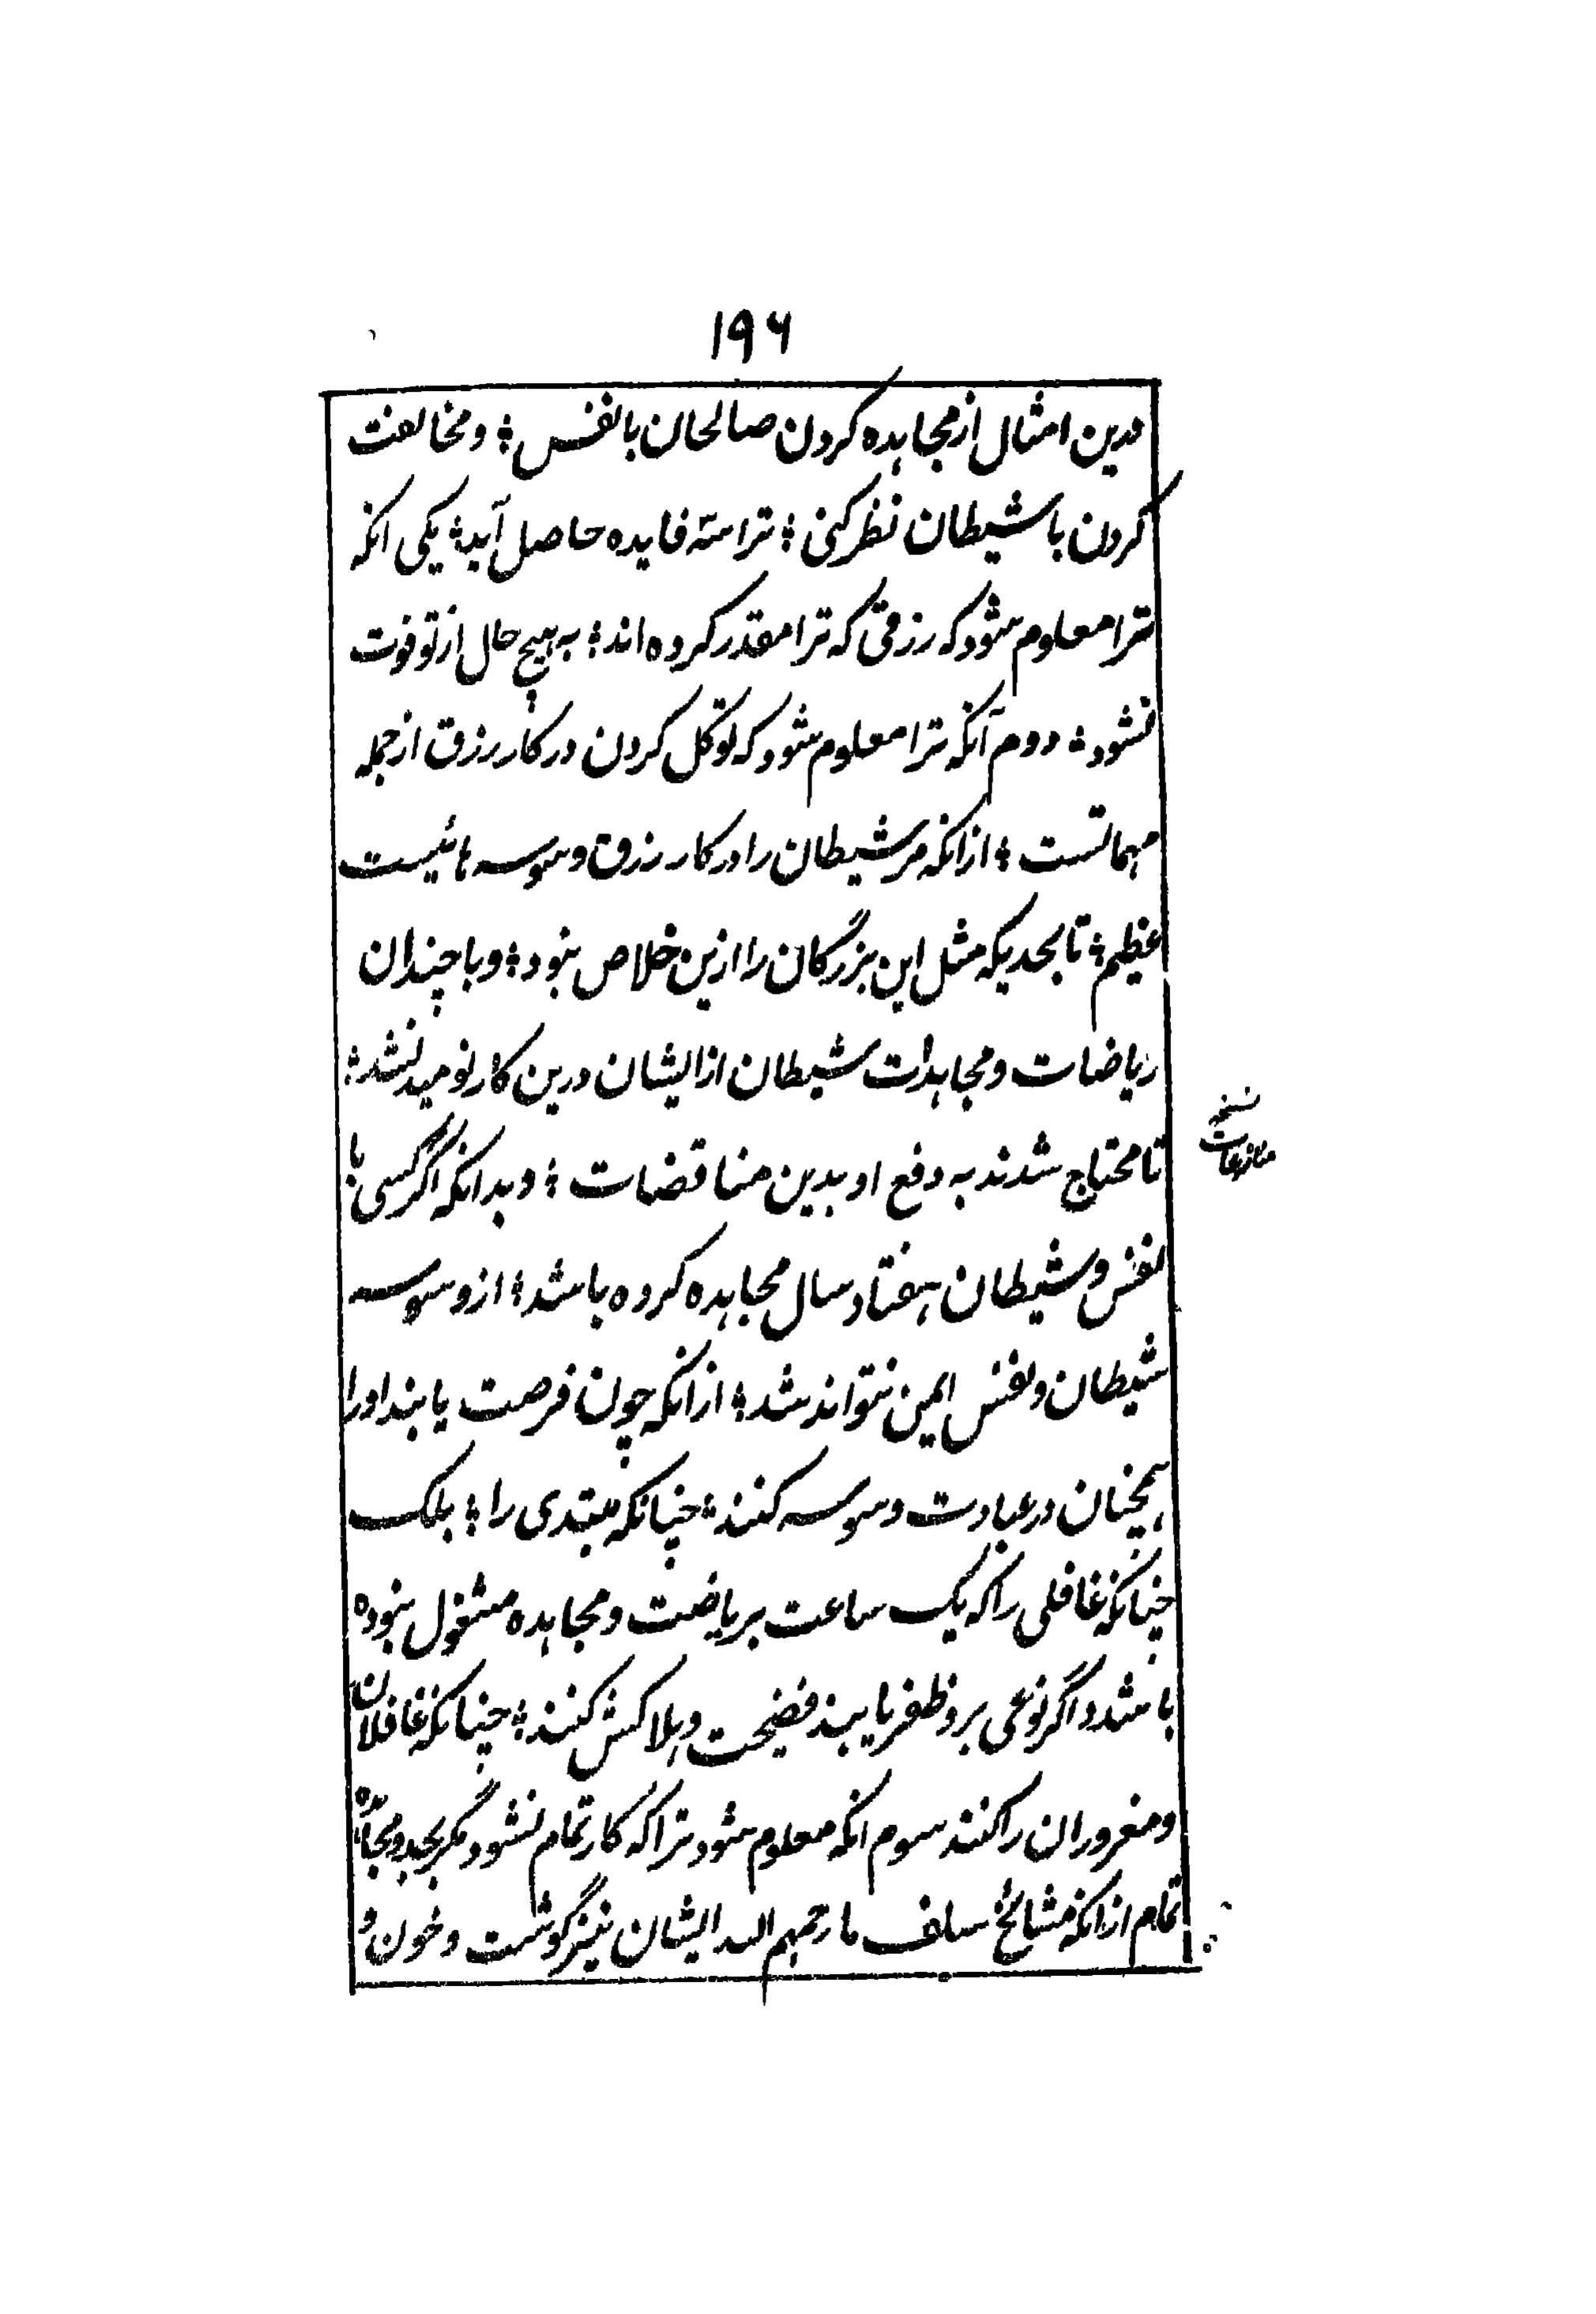 ۱۹۶
بدین امثال از مجاهده کردن صالحان بانفس ؛ ومخالفت
کردن با شیطان نظر کنی ؛ ترا سه فایده حاصل آید ؛ یکی انکه
ترا معلوم شود که رزقی که ترا مقدر کرده اند ؛ به هیچ حال از تو فوت
نشود ؛ دوم آنکه ترا معلوم شود که توکل کردن در کار رزق از جمله
مهماتست ؛ از انکه مر شیطان را در کار رزق وسوسه هائیست
عظیم ؛ تا بحدیکه مثل این بزرگان را ازین خلاص نبود ؛ و با چندان
ریاضات و مجاهدات شیطان از ایشان درین کار نومید نشد ؛
تا محتاج شدند به دفع او بدین مناقضات ؛ و بدانکه اگر کسی با
نفس و شیطان هفتاد سال مجاهده کرده باشد ؛ از وسوسه
شیطان و نفس ایمن نتواند شد ؛ از انکه چون فرصت یابند اورا
همچنان در عبادت وسوسه کنند ؛ چنانکه مبتدی را ؛ بلک
چنانکه غافلی را که یک ساعت بریاضت و مجاهده مشغول نبوده
باشد و اگر نوعی برو ظفر یابند فضیحت و هلاکش کنند ؛ چنانکه غافلان
و مغروران را کنند سوم انکه معلوم شود ترا که کار تمام نشود مگر بجد و مجاهده
تمام از انکه مشائخ سلف ما رحمهم الله ایشان نیز گوشت و خون و
نسخه
منازعات